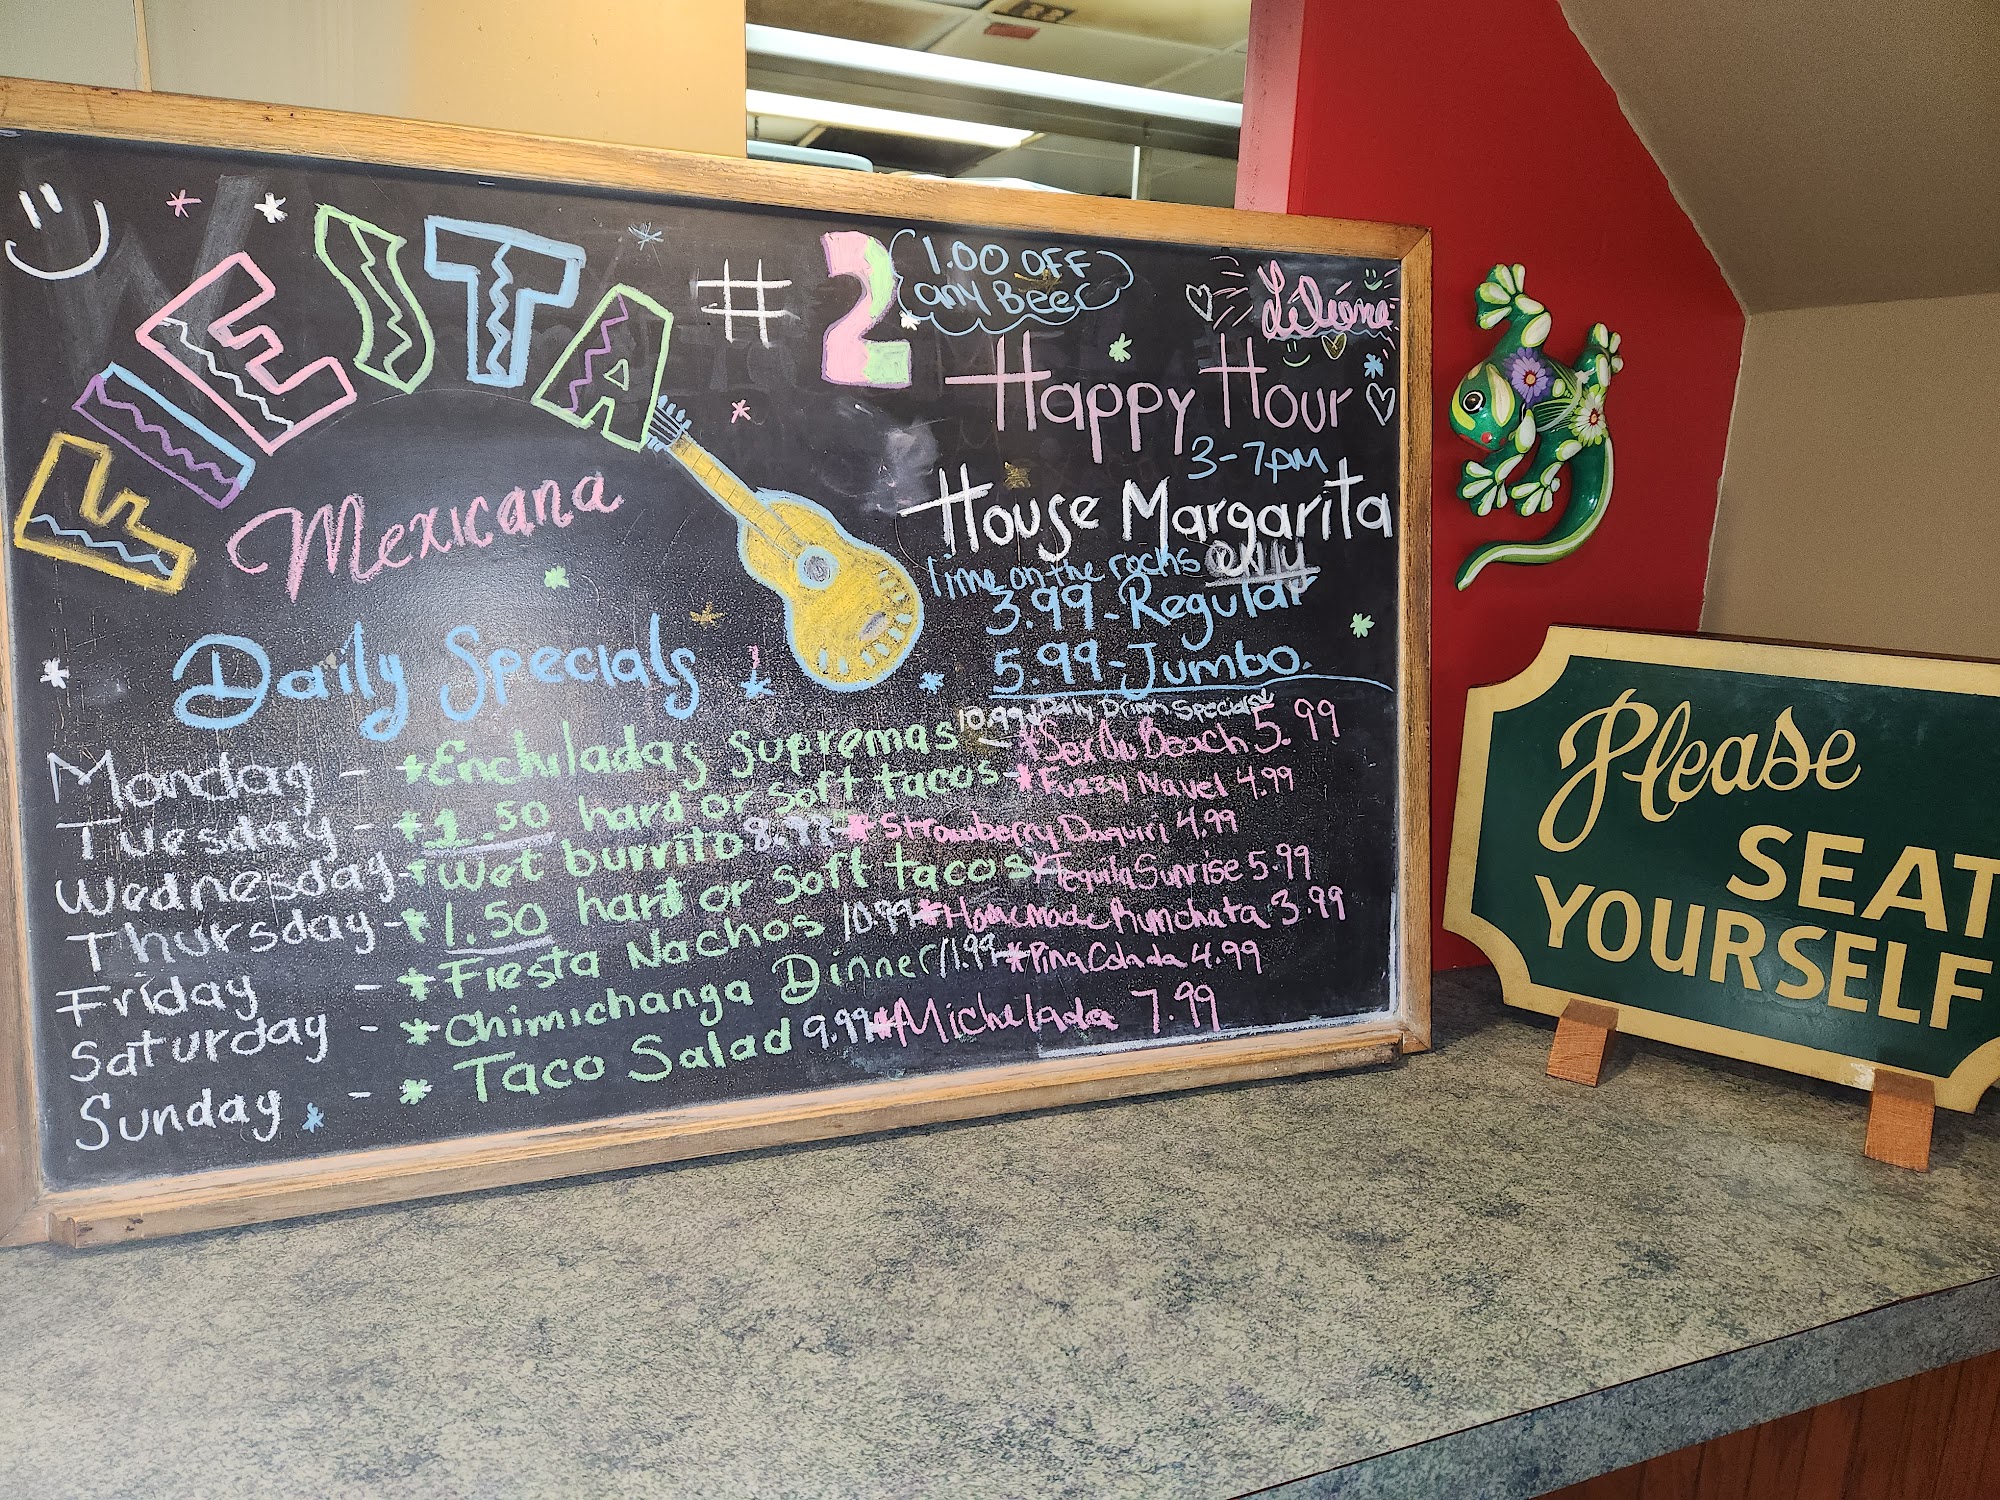 FIESTA #2
Mexicana
1.00 OFF
any Beer
Liliana
Happy Hour
3-7pm
House Margarita
lime on the rocks only
3.99-Regular
5.99-Jumbo.
Daily Specials
Daily Drink Specials
Monday - *Enchiladas Supremas 10.99 *Sex On Beach 5.99
Tuesday - *1.50 hard or soft tacos - *Fuzzy Navel 4.99
Wednesday - *Wet burrito 8.99 - *Strawberry Daquiri 4.99
Thursday - *1.50 hard or soft tacos *Tequila Sunrise 5.99
Friday - *Fiesta Nachos 10.99 *Homemade Rumchata 3.99
Saturday - *Chimichanga Dinner 11.99 - *Pina Colada 4.99
Sunday - * Taco Salad 9.99 *Michelada 7.99
Please
SEAT
YOURSELF